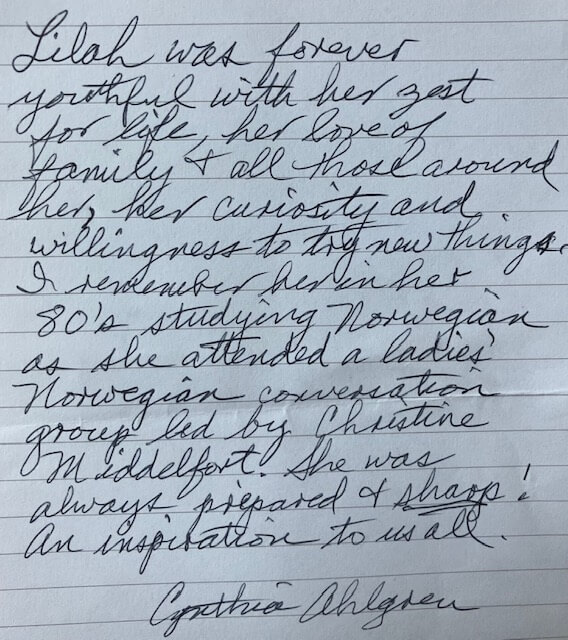 Lilah was forever
youthful with her zest
for life, her love of
family & all those around
her, her curiosity and
willingness to try new things.
I remember her in her
80's studying Norwegian
as she attended a ladies'
Norwegian conversation
group led by Christine
Middelfort. She was
always prepared & sharp!
An inspiration to us all.
Cynthia Ahlgren